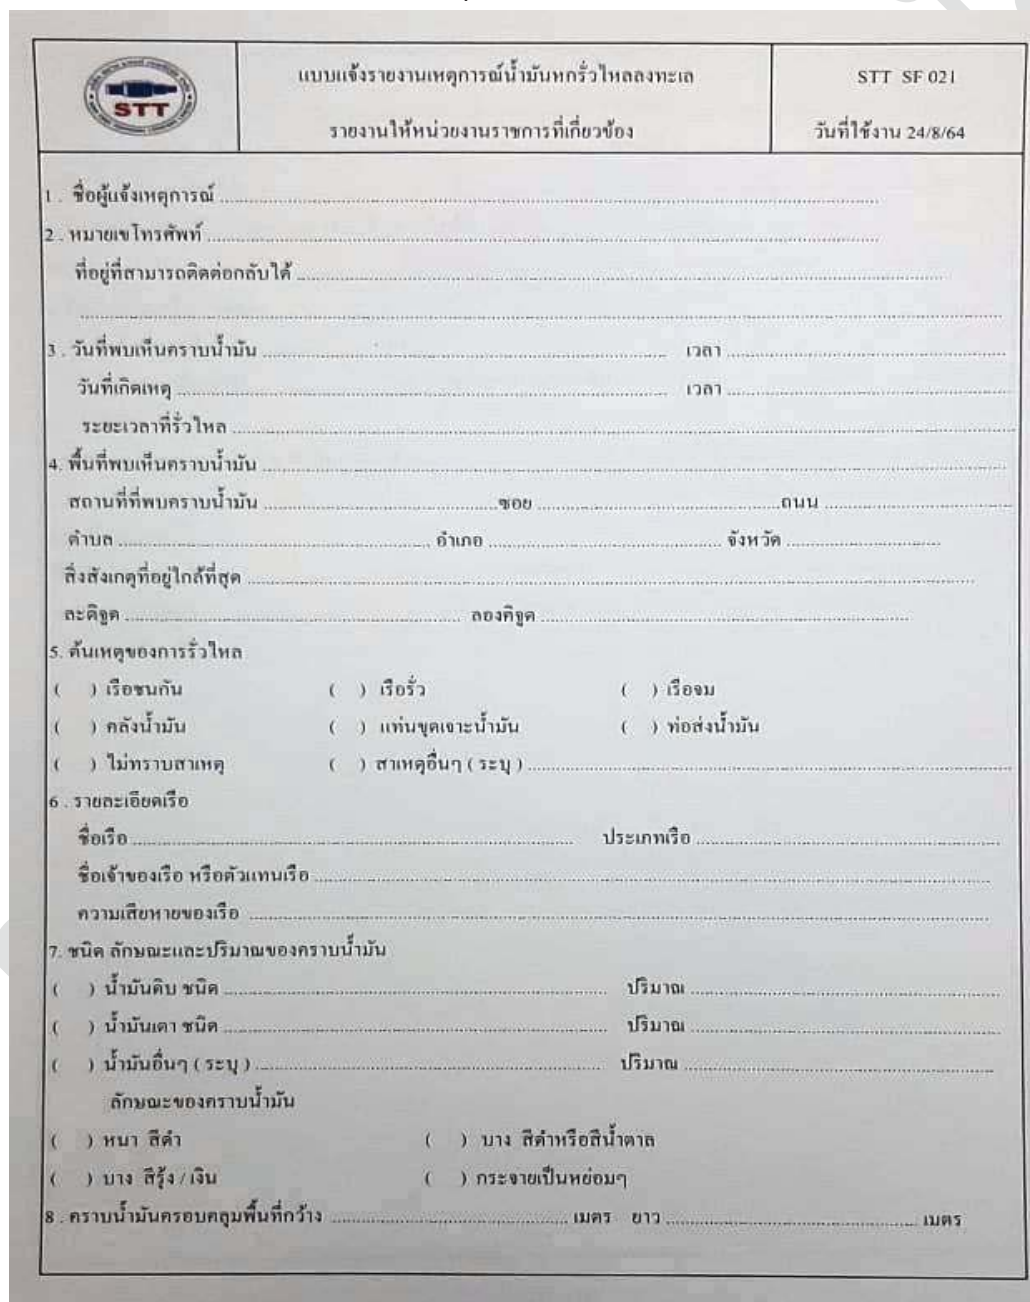 STT
แบบแจ้งรายงานเหตุการณ์น้ำมันหกรั่วไหลลงทะเล
รายงานให้หน่วยงานราชการที่เกี่ยวข้อง
STT SF 021
วันที่ใช้งาน 24/8/64
1 . ชื่อผู้แจ้งเหตุการณ์ ..........
2 . หมายเขโทรศัพท์ ..........
ที่อยู่ที่สามารถติดต่อกลับได้ ..........
..........
3 . วันที่พบเห็นคราบน้ำมัน .......... เวลา ..........
วันที่เกิดเหตุ .......... เวลา ..........
ระยะเวลาที่รั่วไหล ..........
4. พื้นที่พบเห็นคราบน้ำมัน ..........
สถานที่ที่พบคราบน้ำมัน ..........ซอย ..........ถนน ..........
ตำบล .......... อำเภอ .......... จังหวัด ..........
สิ่งสังเกตุที่อยู่ใกล้ที่สุด ..........
ละติจูด .......... ลองติจูด ..........
5. ต้นเหตุของการรั่วไหล
( ) เรือชนกัน ( ) เรือรั่ว ( ) เรือจม
( ) คลังน้ำมัน ( ) แท่นขุดเจาะน้ำมัน ( ) ท่อส่งน้ำมัน
( ) ไม่ทราบสาเหตุ ( ) สาเหตุอื่นๆ ( ระบุ ) ..........
6 . รายละเอียดเรือ
ชื่อเรือ .......... ประเภทเรือ ..........
ชื่อเจ้าของเรือ หรือตัวแทนเรือ ..........
ความเสียหายของเรือ ..........
7. ชนิด ลักษณะและปริมาณของคราบน้ำมัน
( ) น้ำมันดิบ ชนิด .......... ปริมาณ ..........
( ) น้ำมันเตา ชนิด .......... ปริมาณ ..........
( ) น้ำมันอื่นๆ ( ระบุ ) .......... ปริมาณ ..........
ลักษณะของคราบน้ำมัน
( ) หนา สีดำ ( ) บาง สีดำหรือสีน้ำตาล
( ) บาง สีรุ้ง / เงิน ( ) กระจายเป็นหย่อมๆ
8 . คราบน้ำมันครอบคลุมพื้นที่กว้าง .......... เมตร ยาว .......... เมตร